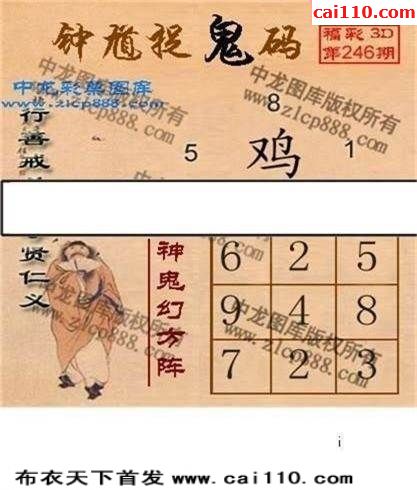 cai110.com
钟馗捉鬼码
福彩3D
第246期
中龙彩票图库
www.zlcp888.com
中龙图库版权所有
www.zlcp888.com
8
5 鸡 1
行善戒
贤仁义
神鬼幻方阵
6 2 5
9 4 8
7 2 3
中龙图库版权所有
www.zlcp888.com
中龙图库版权所有
www.zlcp888.com
i
布衣天下首发 www.cai110.com